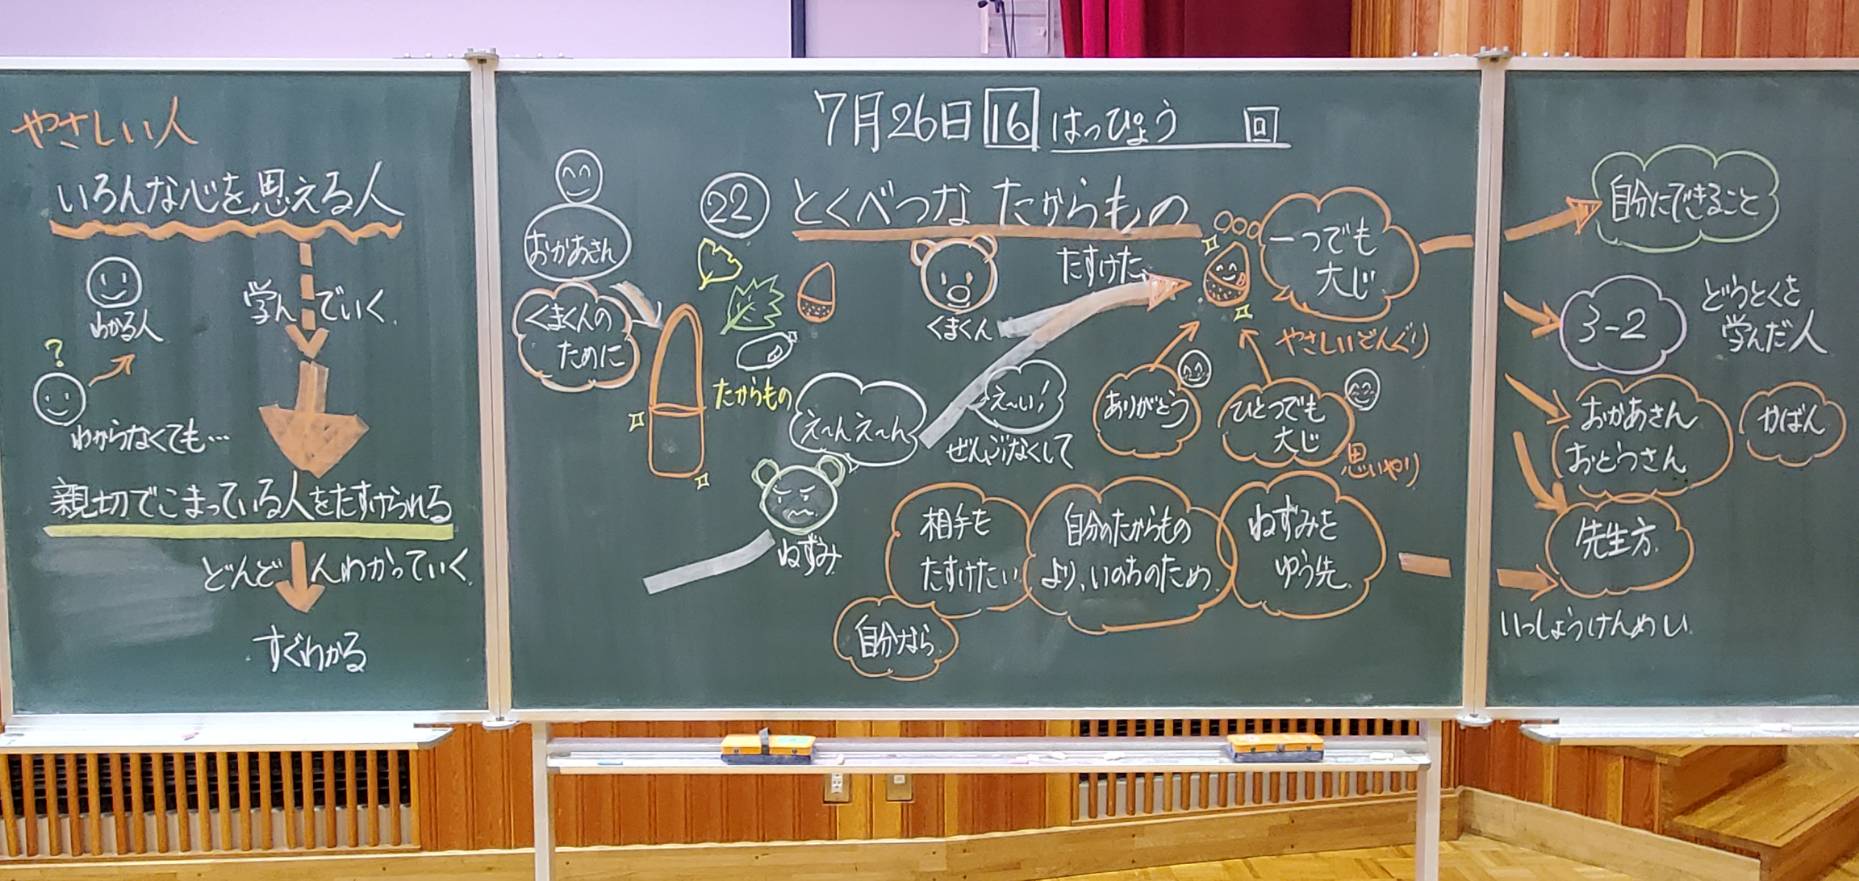 やさしい人
いろんな心を思える人
学んでいく
わかる人
?
わからなくても…
親切でこまっている人をたすけられる
どんどんわかっていく
すぐわかる
7月26日 16 はっぴょう 回
22 とくべつな たからもの
おかあさん
くまくんの
ために
たからもの
くまくん
たすけた
一つでも
大じ
やさしいどんぐり
え〜んえ〜ん
ねずみ
え〜い!
ぜんぶなくして
ありがとう
ひとつでも
大じ
思いやり
相手を
たすけたい
自分のたからもの
より、いのちのため
ねずみを
ゆう先
自分なら
自分にできること
3-2
どうとくを
学んだ人
おかあさん
おとうさん
かばん
先生方
いっしょうけんめい